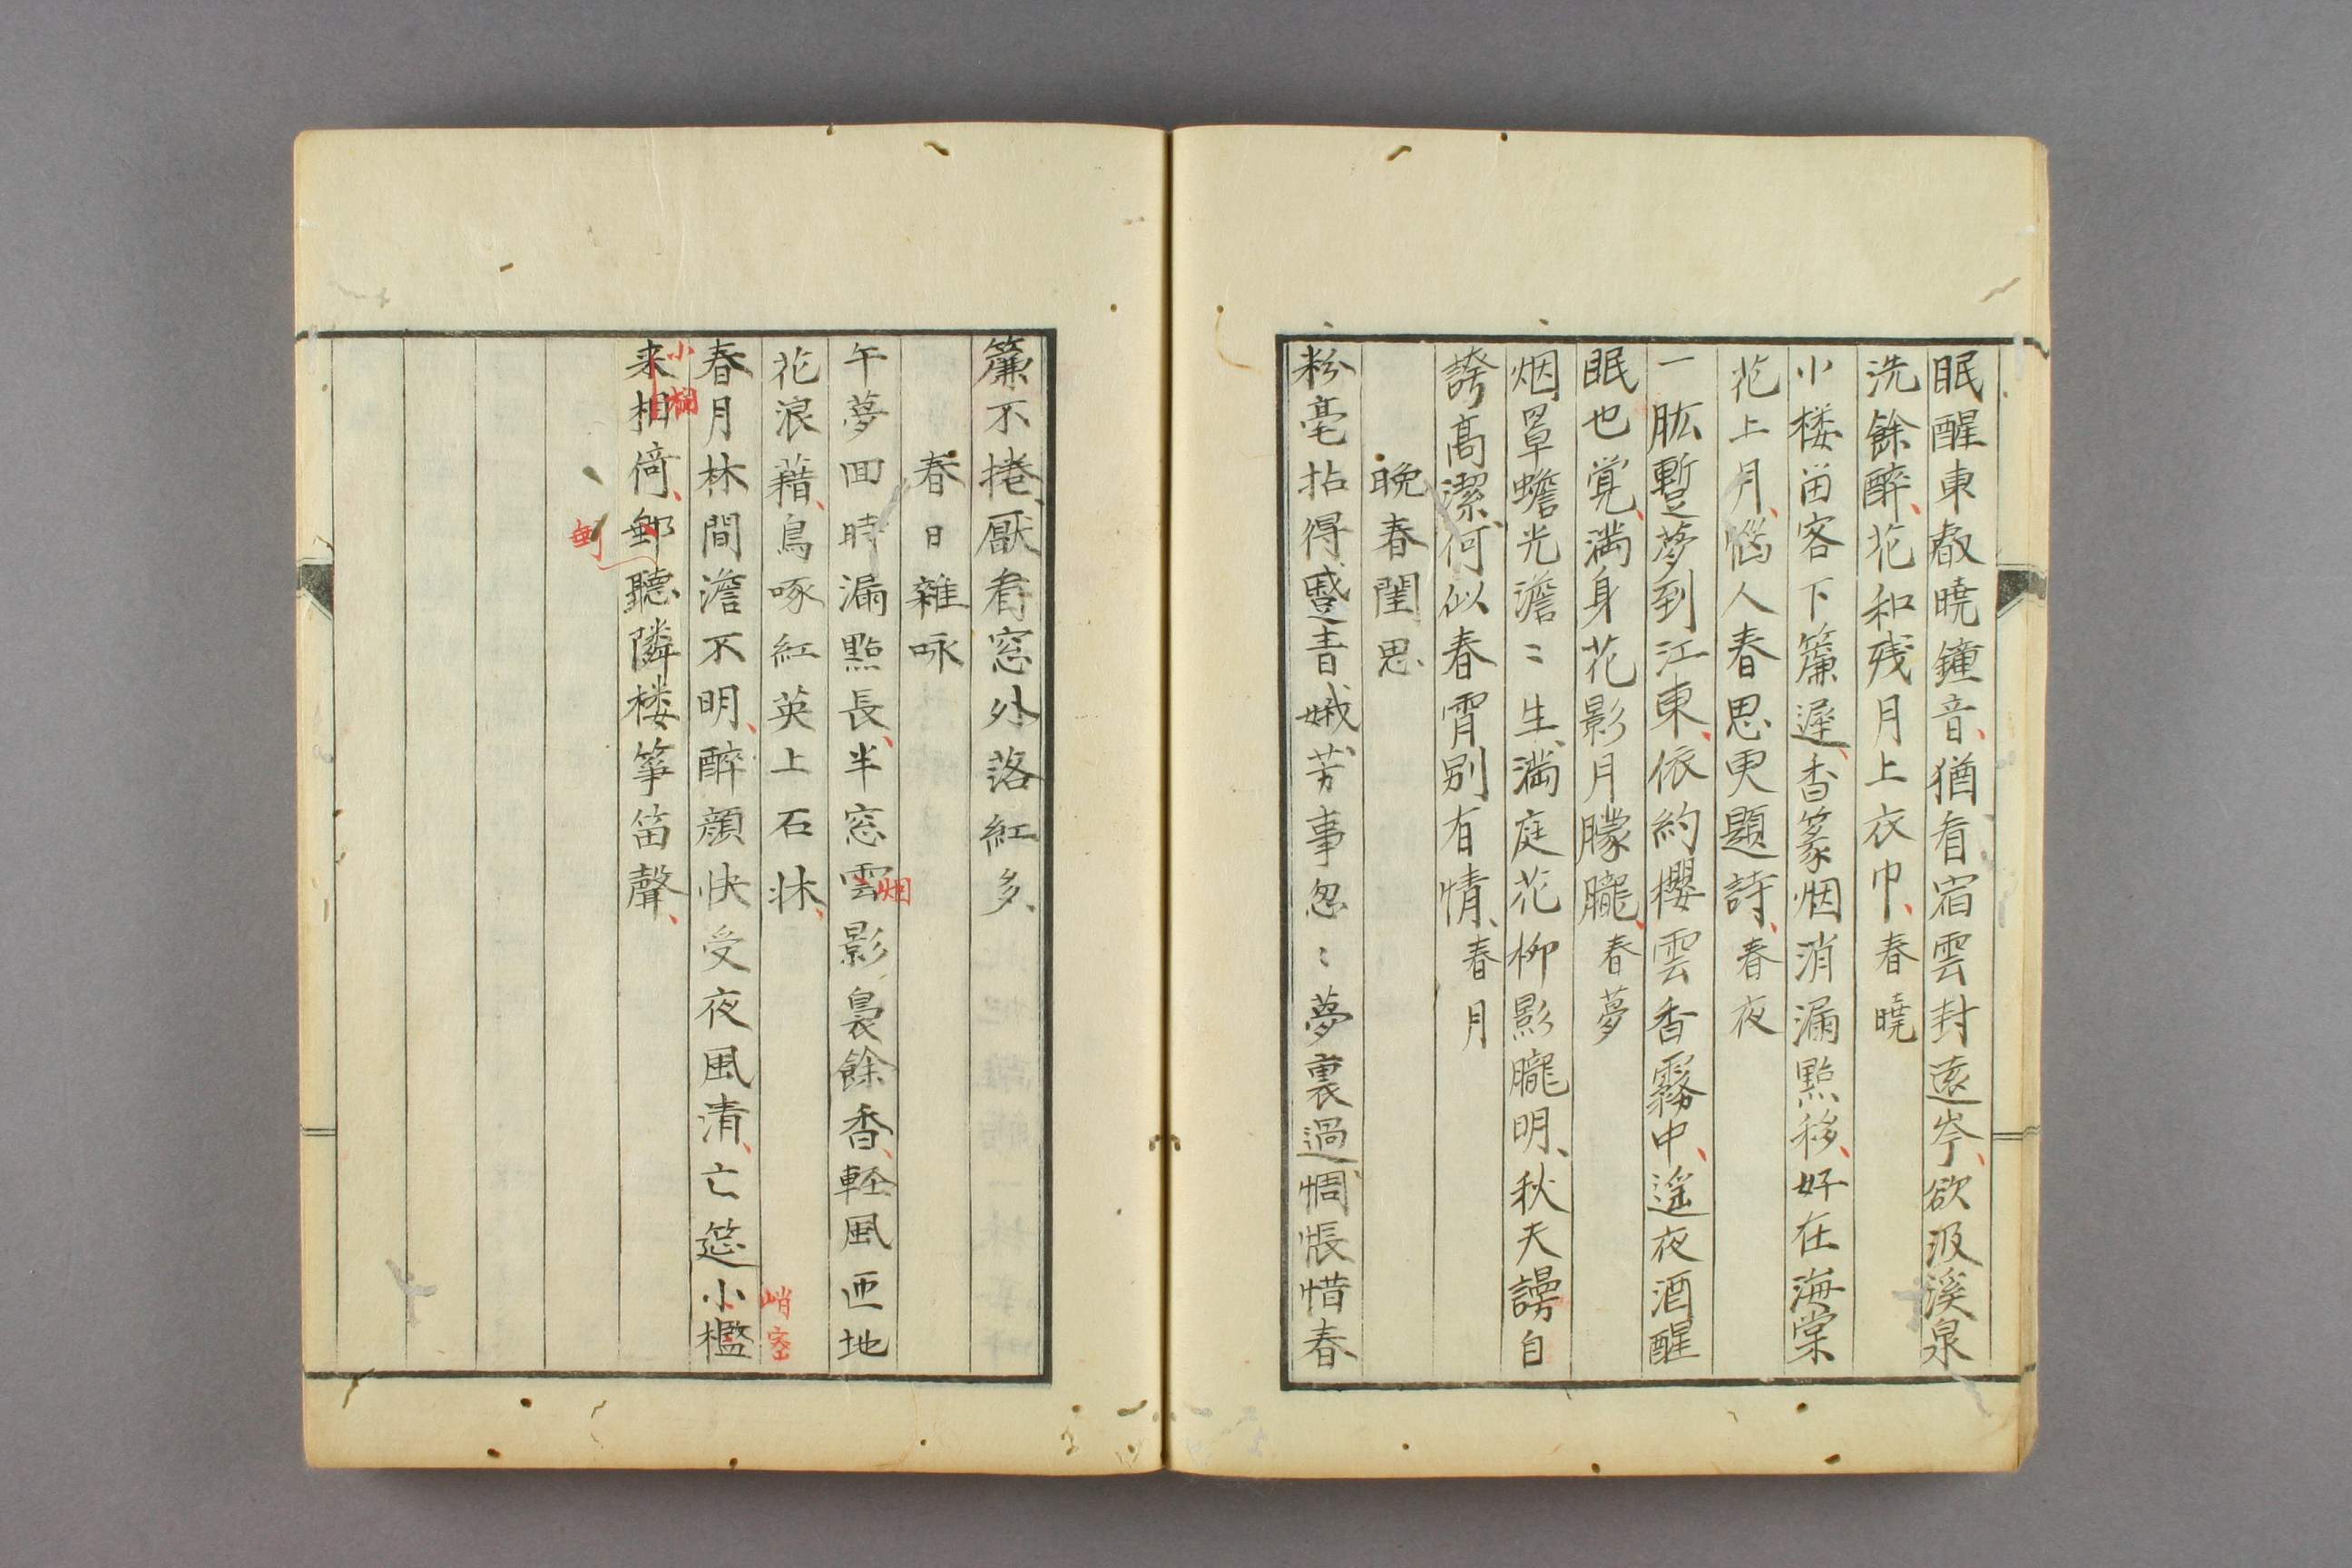 眠醒東敲曉鐘音、猶看宿雲封遠岑、欲汲溪泉
洗餘醉、花和残月上衣巾、春曉
小楼留客下簾遲、香篆烟消漏點移、好在海棠
花上月、惱人春思更題詩、春夜
一肱蹔夢到江東、依約櫻雲香霧中、遥夜酒醒
眠也覚、満身花影月朦朧、春夢
烟罩蟾光澹〻生、満庭花柳影朧明、秋天謾自
誇髙潔、何似春霄別有情、春月
晩春閨思
粉毫拈得蹙青娥、芳事忽〻夢裏過、惆悵惜春
簾不捲、厭看窓外落紅多、
春日雜咏
午夢回時漏點長、半窓雲影裊餘香、軽風匝地
烟
花浪藉、鳥啄紅英上石牀、
春月林間澹不明、醉顔快受夜風清、亡筵小檻
峭
来相倚、郵聽隣楼筝笛聲、
小欄